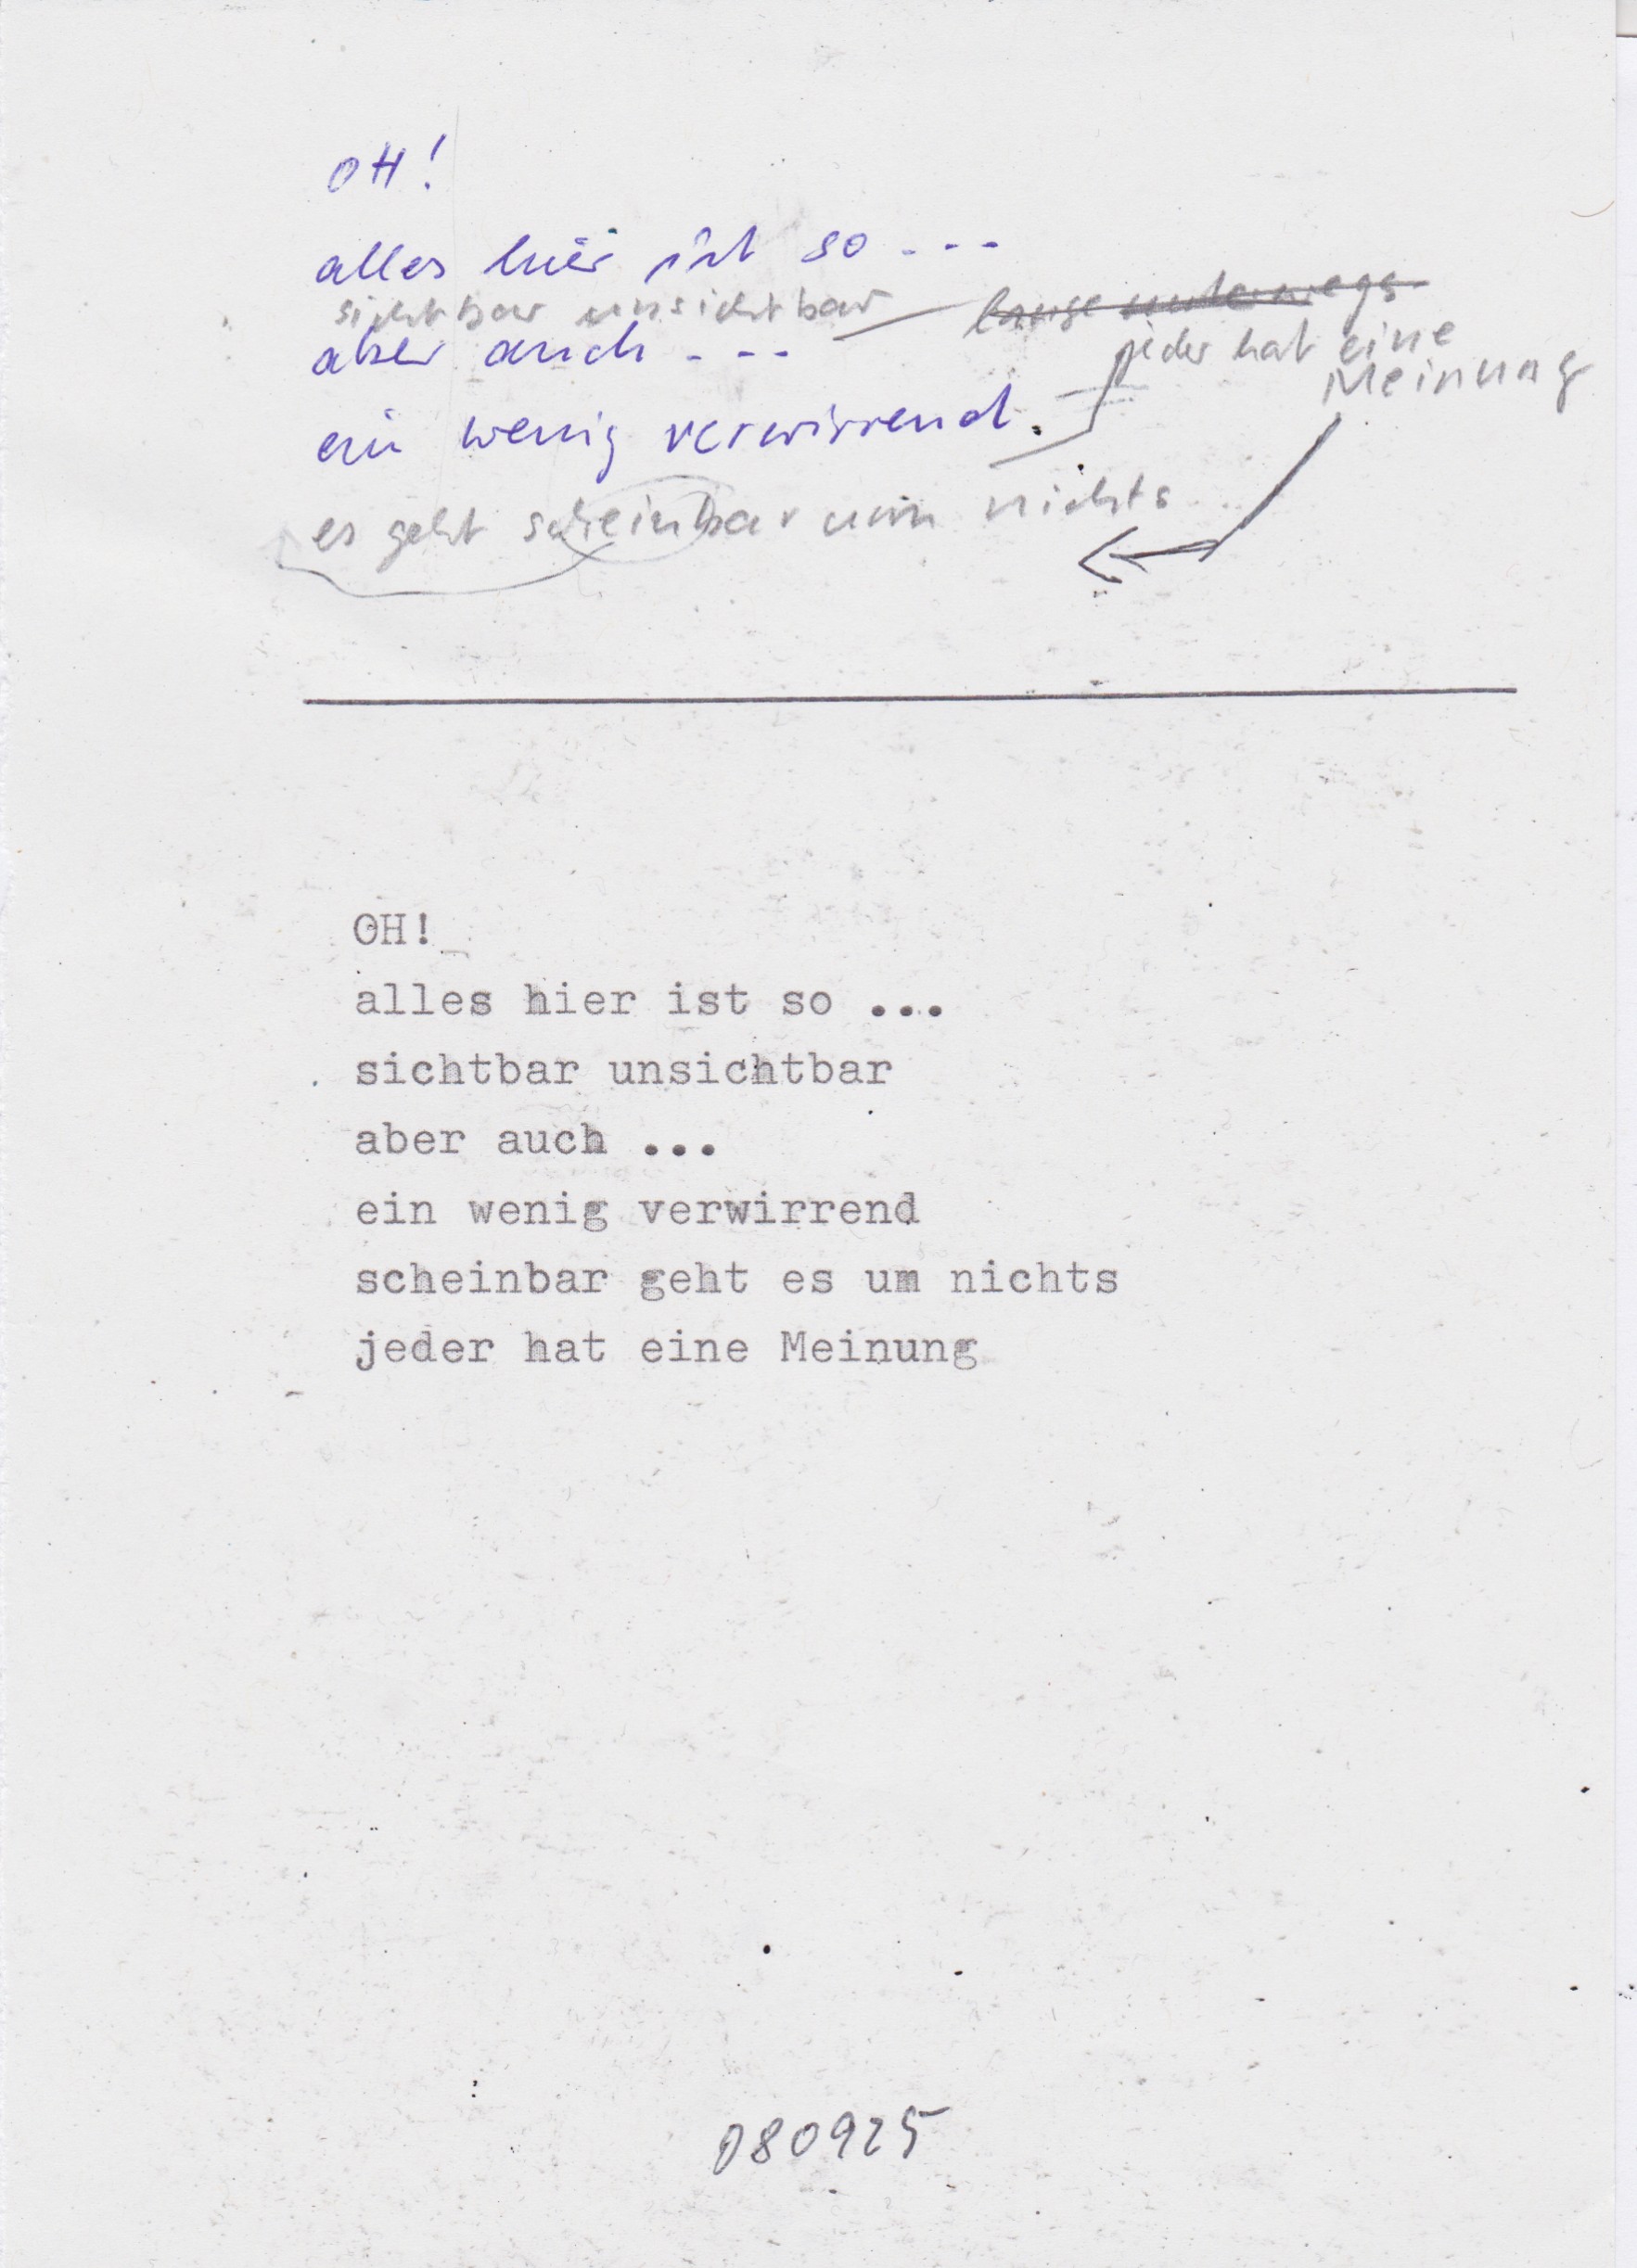 OH!
alles hier ist so ...
sichtbar unsichtbar lange unterwegs
aber auch ... jeder hat eine
Meinung
ein wenig verwirrend.
es geht scheinbar um nichts
OH!_
alles hier ist so ...
sichtbar unsichtbar
aber auch ...
ein wenig verwirrend
scheinbar geht es um nichts
jeder hat eine Meinung
080925